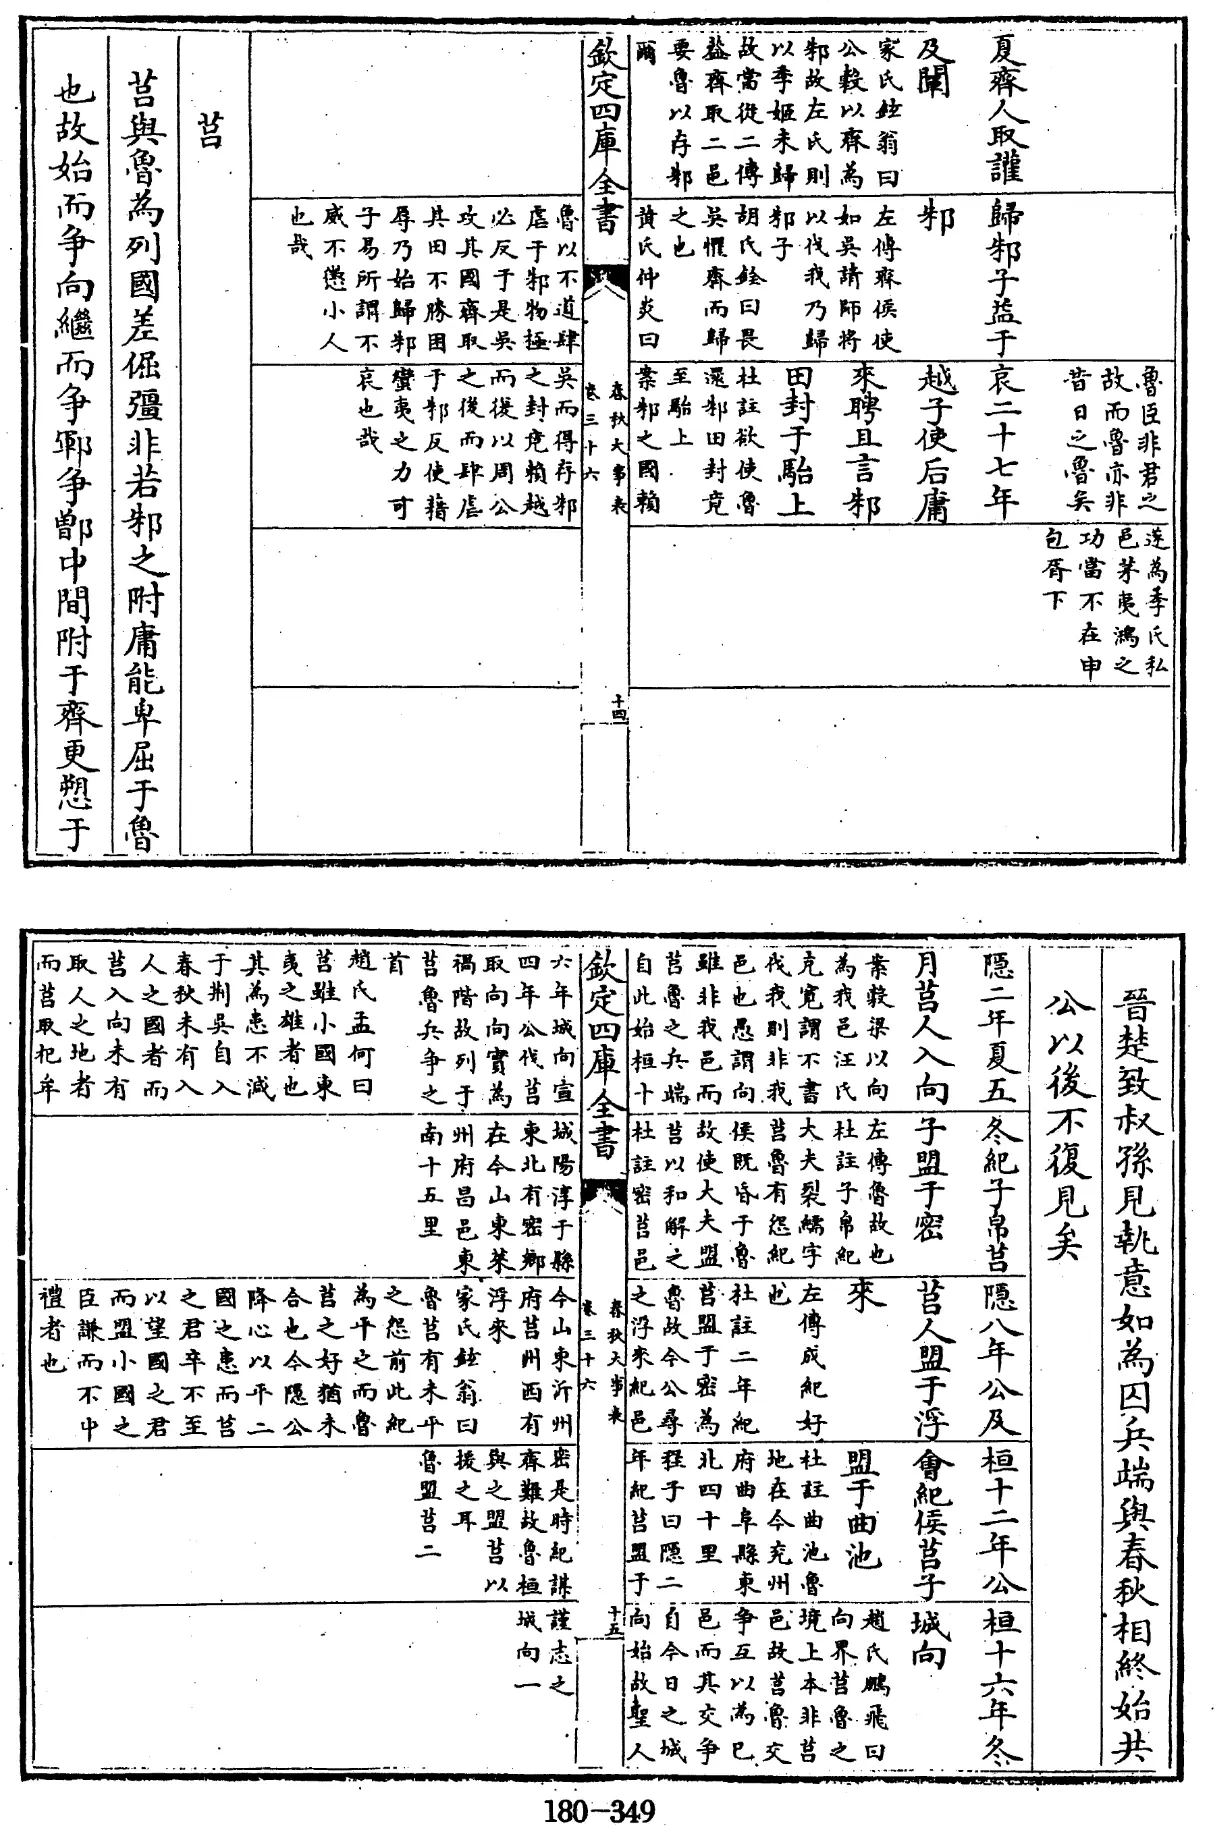 夏齊人取讙
及闡
家氏鉉翁曰
公穀以齊為
邾故左氏則
以季姬未歸
故當從二傳
益齊取二邑
要魯以存邾
爾
歸邾子益于
邾
左傳齊侯使
如吳請師將
以伐我乃歸
邾子
胡氏銓曰畏
吳懼齊而歸
之也
黃氏仲炎曰
魯臣非君之
故而魯亦非
昔日之魯矣
哀二十七年
越子使后庸
來聘且言邾
田封于駘上
杜註欲使魯
還邾田封竟
至駘上
案邾之國賴
遂為季氏私
邑茅夷鴻之
功當不在申
包胥下
欽定四庫全書
春秋大事表
卷三十六
十四
魯以不道肆
虐于邾物極
必反于是吳
攻其國齊取
其田不勝困
辱乃始歸邾
子易所謂不
威不懲小人
也哉
吳而得存邾
之封竟賴越
而從以周公
之後而肆虐
于邾反使藉
蠻夷之力可
哀也哉
莒
莒與魯為列國差倔彊非若邾之附庸能卑屈于魯
也故始而爭向繼而爭鄆爭鄫中間附于齊更愬于
晉楚致叔孫見執意如為囚兵端與春秋相終始共
公以後不復見矣
隱二年夏五
月莒人入向
案穀梁以向
為我邑汪氏
克寬謂不書
伐我則非我
邑也愚謂向
雖非我邑而
莒魯之兵端
自此始桓十
冬紀子帛莒
子盟于密
左傳魯故也
杜註子帛紀
大夫裂繻字
莒魯有怨紀
侯既昏于魯
故使大夫盟
莒以和解之
杜註密莒邑
隱八年公及
莒人盟于浮
來
左傳成紀好
也
杜註二年紀
莒盟于密為
魯故今公尋
之浮來紀邑
桓十二年公
會紀侯莒子
盟于曲池
杜註曲池魯
地在今兗州
府曲阜縣東
北四十里
程子曰隱二
年紀莒盟于
桓十六年冬
城向
趙氏鵬飛曰
向界莒魯之
境上本非莒
邑故莒魯交
爭互以為已
邑而其交爭
自今日之城
向始故聖人
欽定四庫全書
春秋大事表
卷三十六
十五
六年城向宣
四年公伐莒
取向向實為
禍階故列于
莒魯兵爭之
首
趙氏孟何曰
莒雖小國東
夷之雄者也
其為患不減
于荆吳自入
春秋未有入
人之國者而
莒入向未有
取人之地者
而莒取杞牟
城陽淳于縣
東北有密鄉
在今山東萊
州府昌邑東
南十五里
今山東沂州
府莒州西有
浮來
家氏鉉翁曰
魯莒有未平
之怨前此紀
為平之而魯
莒之好猶未
合也今隱公
降心以平二
國之患而莒
之君卒不至
以望國之君
而盟小國之
臣謙而不中
禮者也
密是時紀謀
齊難故魯桓
與之盟莒以
援之耳
魯盟莒二
謹志之
城向一
180-349